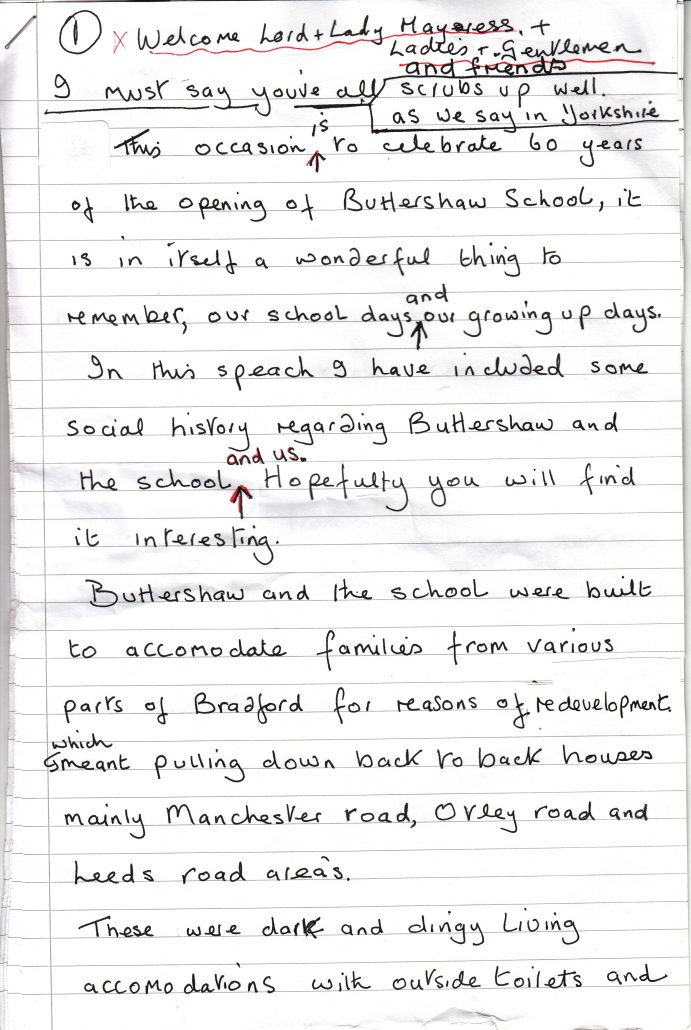 ① x Welcome Lord + Lady Mayoress. +
Ladies + Gentlemen
and friends
I must say you've all scrubs up well.
as we say in Yorkshire
is
This occasion to celebrate 60 years
of the opening of Buttershaw School, it
is in itself a wonderful thing to
and
remember, our school days, our growing up days.
In this speach I have included some
social history regarding Buttershaw and
and us.
the school. Hopefully you will find
it interesting.
Buttershaw and the school were built
to accomodate families from various
parts of Bradford for reasons of redevelopment.
which
meant pulling down back to back houses
mainly Manchester road, Otley road and
Leeds road area's.
These were dark and dingy Living
accomodations with outside toilets and